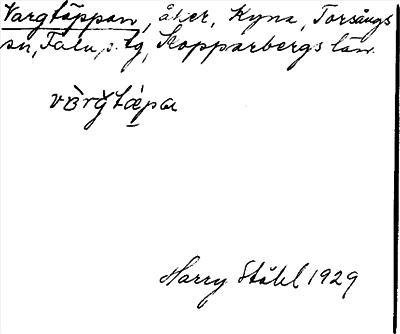 Vargtäppan, åker, Kyna, Torsångs
sn, Falu s. tg, Kopparbergs län.
Harry Ståhl 1929